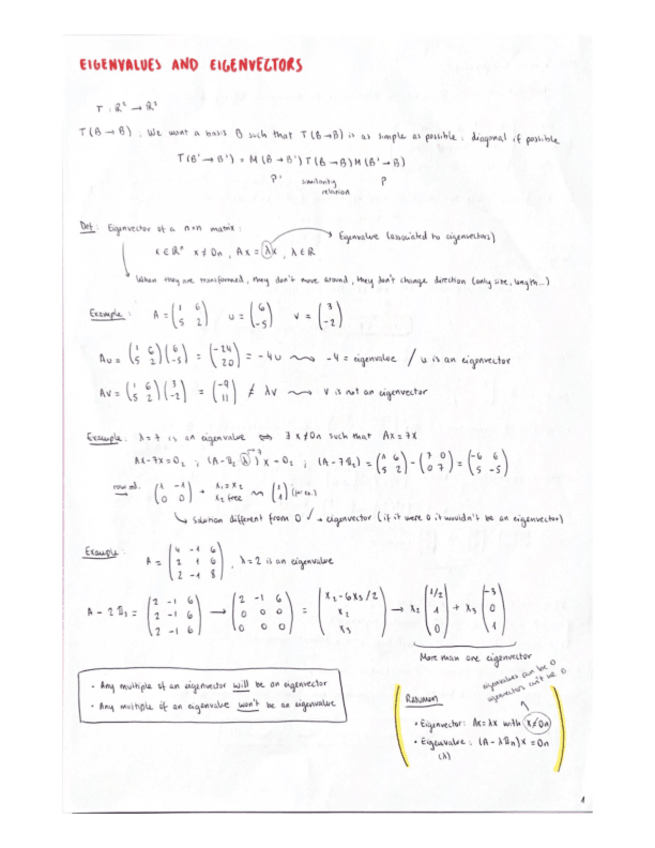 EIGENVALUES AND EIGENVECTORS
T : ℝ² → ℝ³
T(B → B) . We want a basis B such that T(B→B) is as simple as possible : diagonal if possible
T(B' → B') = M(B → B') T(B → B) M(B' → B)
similarity P
relation
Def: Eigenvector of a n×n matrix :
→ Eigenvalue (associated to eigenvectors)
x ∈ ℝⁿ x ≠ 0n , Ax = λx , λ ∈ ℝ
When they are transformed, they don't move around, they don't change direction (only size, length...)
Example : A = (1 6; 5 2) u = (6; -5) v = (3; -2)
Au = (1 6; 5 2)(6; -5) = (-24; 20) = -4u ⟿ -4 = eigenvalue / u is an eigenvector
Av = (1 6; 5 2)(3; -2) = (-9; 11) ≠ λv ⟿ v is not an eigenvector
Example: λ=7 is an eigenvalue ⇔ ∃ x≠0n such that Ax=7x
Ax-7x=0₂ ; (A-𝕀₂ λ)x = 0₂ ; (A-7𝕀₂) = (1 6; 5 2) - (7 0; 0 7) = (-6 6; 5 -5)
→7
row red. → (1 -1; 0 0) → x₁=x₂ x₂ free ⟿ (1; 1) (for ex.)
↳ solution different from 0 ✓ → eigenvector (if it were 0 it wouldn't be an eigenvector)
Example :
A = (4 -1 6; 2 1 6; 2 -1 8) , λ=2 is an eigenvalue
A - 2𝕀₃ = (2 -1 6; 2 -1 6; 2 -1 6) → (2 -1 6; 0 0 0; 0 0 0) = (x₂-6x₃/2; x₂; x₃) → x₂ (1/2; 1; 0) + x₃ (-3; 0; 1)
More than one eigenvector
• Any multiple of an eigenvector will be an eigenvector
• Any multiple of an eigenvalue won't be an eigenvalue
eigenvalues can be 0
eigenvectors can't be 0
Resumen
• Eigenvector: Ax=λx with x≠0n
• Eigenvalue : (A - λ𝕀n)x = 0n
(λ)
1